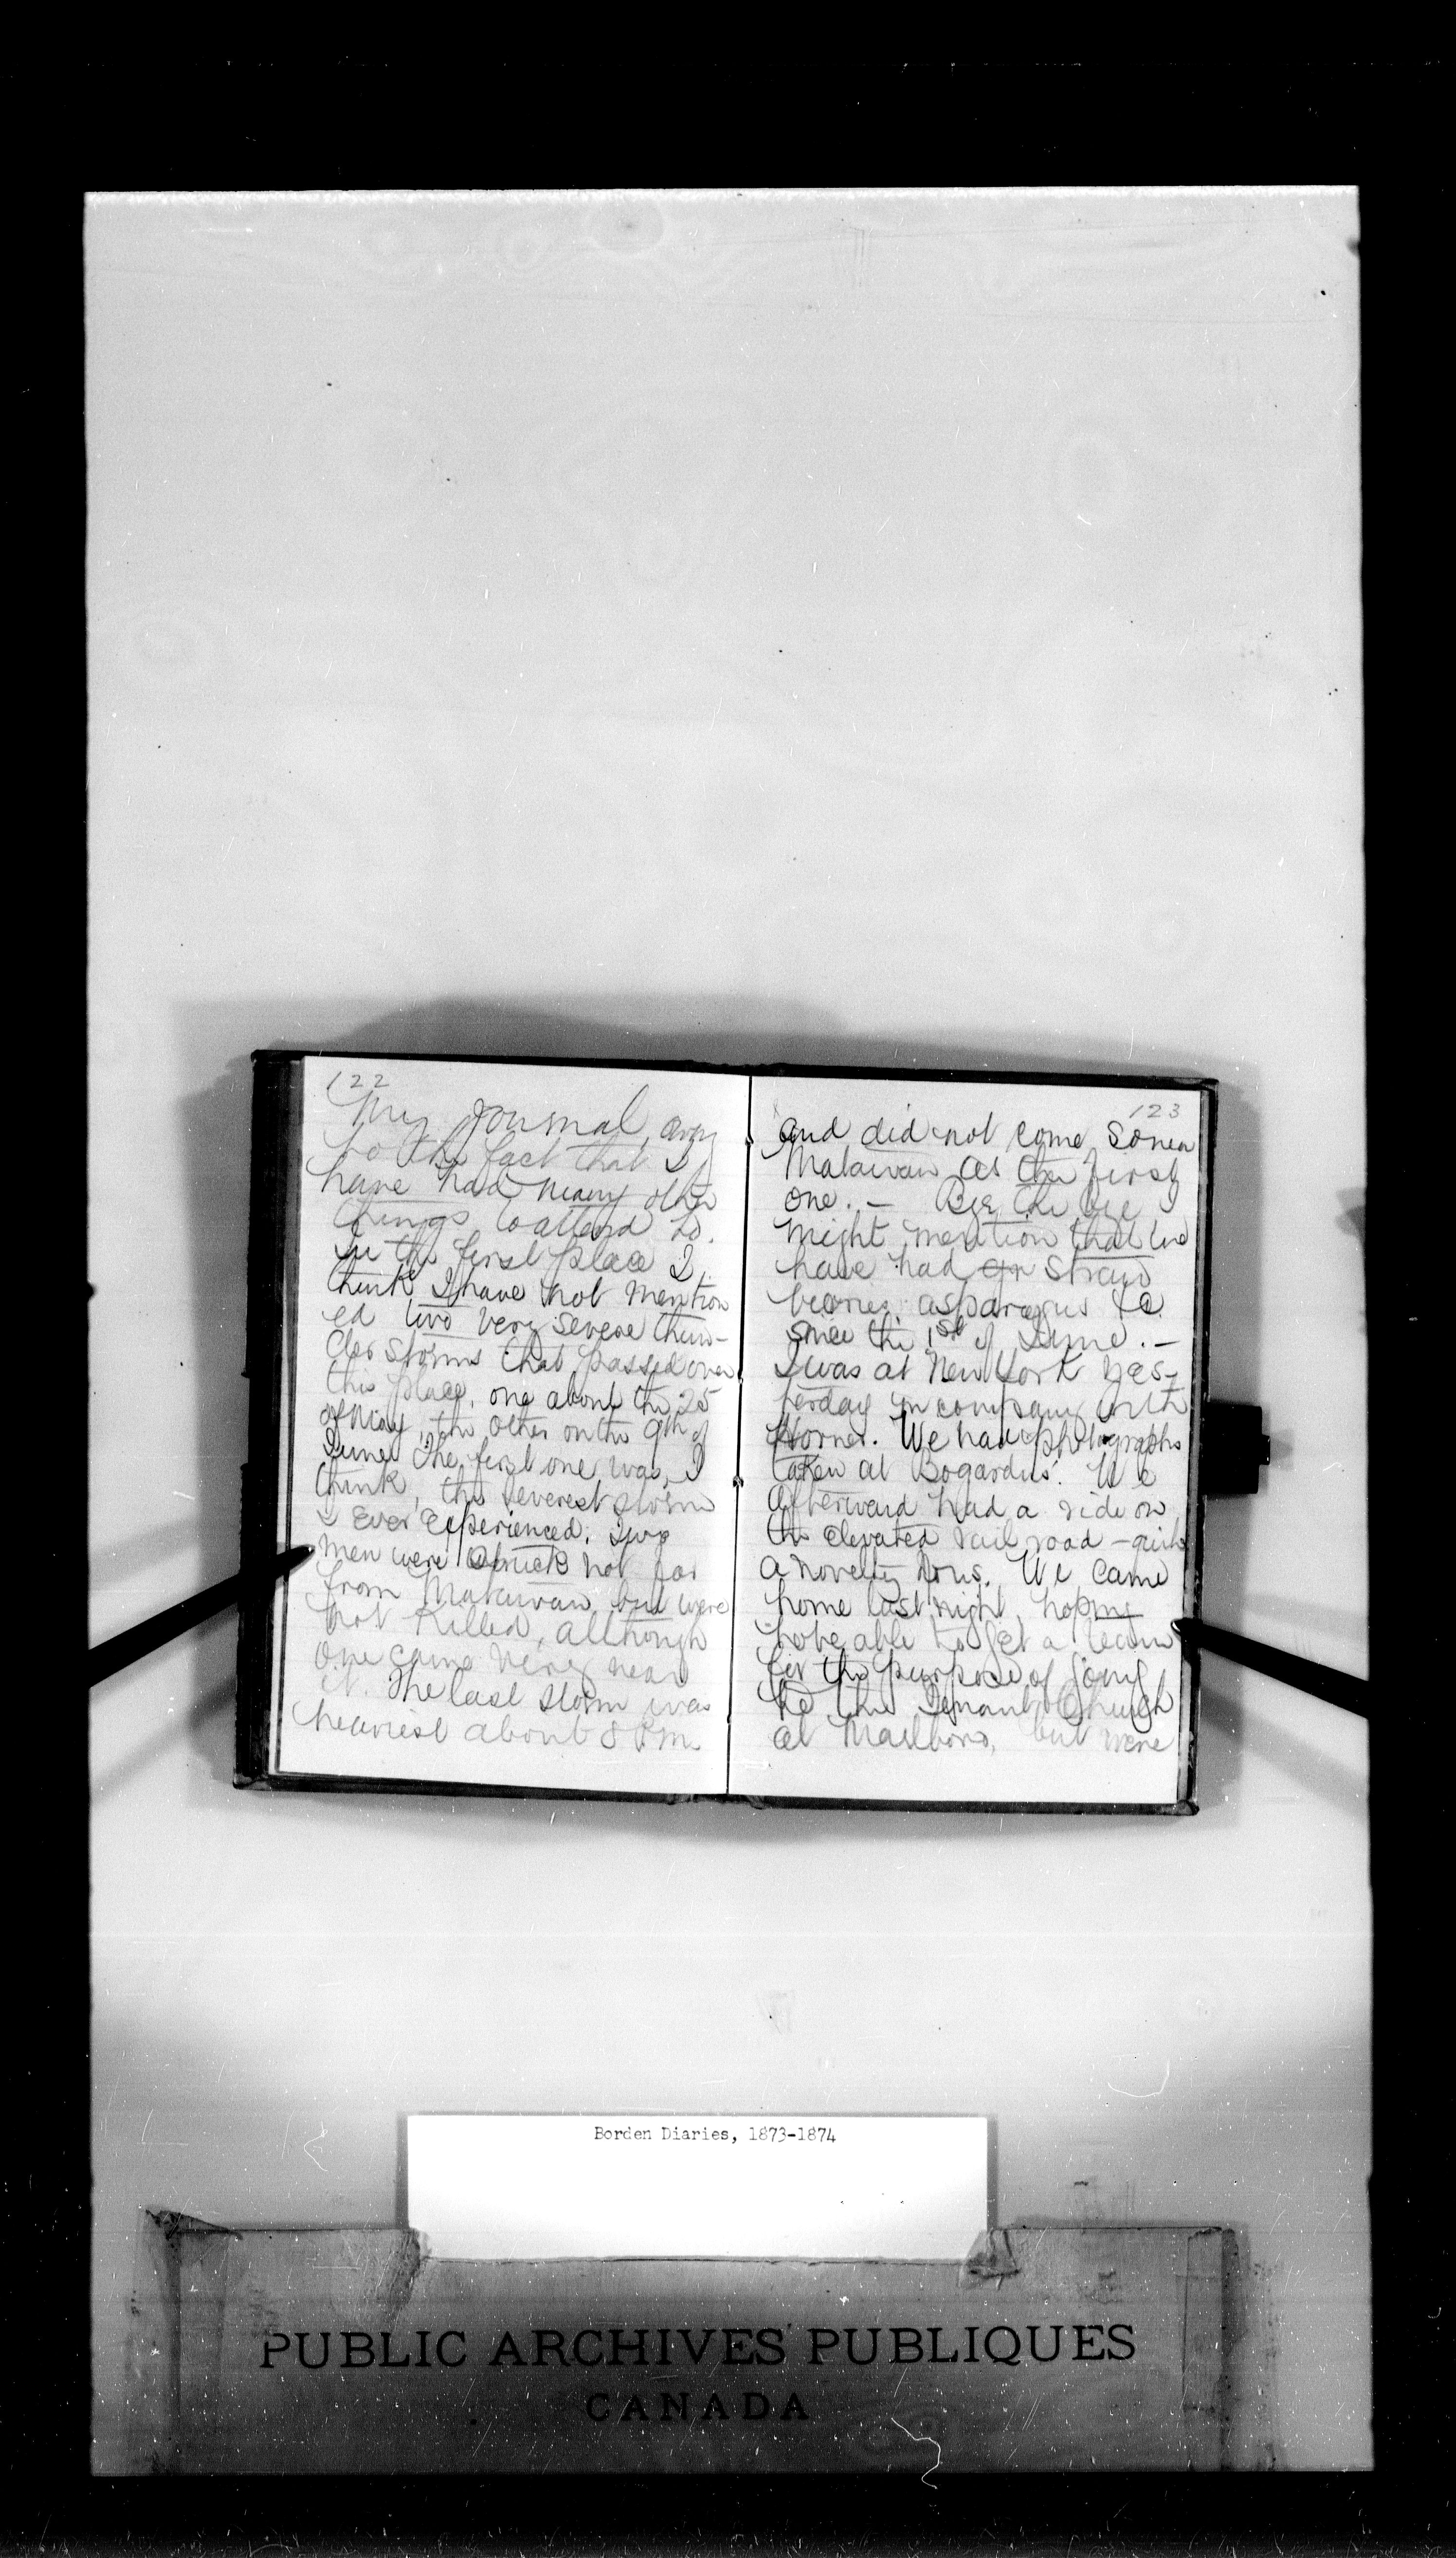 122
My Journal, owing
to the fact that I
have had many other
things to attend to.
In the first place I
think I have not mention
ed two very severe thun-
der storms that passed over
this place, one about the 25
of May, the other on the 9th of
June. The first one was, I
think, the severest storm
I ever experienced. Two
men were struck not far
from Matawan, but were
not killed, although
one came very near
it. The last storm was
heaviest about 8 P.M.
123
and did not come so near
Matawan as the first
one. — Bye the bye I
might mention that we
have had gr straw
berries, asparagus &c
since the 1st of June. —
I was at New York yes-
terday in company with
Horner. We had photographs
taken at Bogardus'. We
afterward had a ride on
the elevated rail road — quite
a novelty to us. We came
home last night, hoping
to be able to get a team
for the purpose of going
to the Tennant Church
at Marlboro, but were
Borden Diaries, 1873-1874
PUBLIC ARCHIVES PUBLIQUES
CANADA